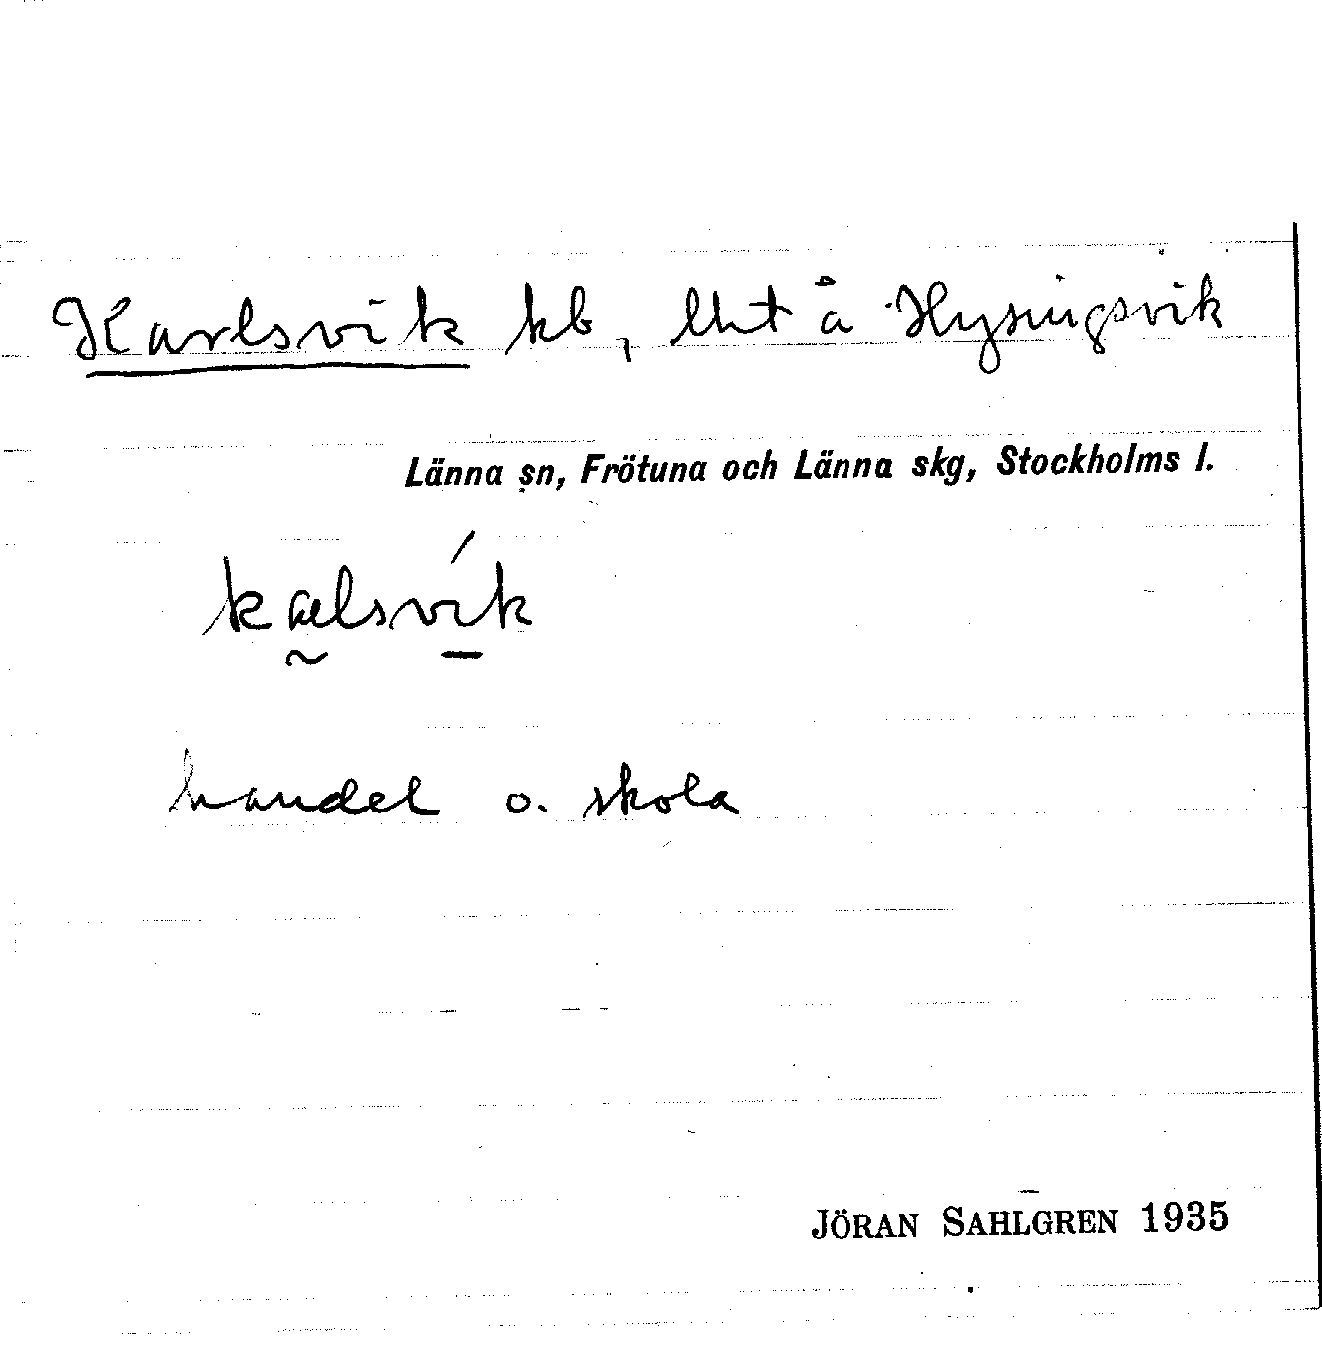 Karlsvik kb, lht å Hysingsvik
Länna sn, Frötuna och Länna skg, Stockholms l.
kalsvík
handel o. skola
JÖRAN SAHLGREN 1935